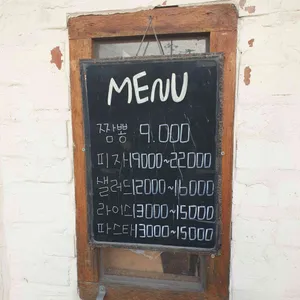 MENU
짬뽕 9.000
피자 19000~22000
샐러드 12000~16000
라이스 13000~15000
파스타 13000~15000